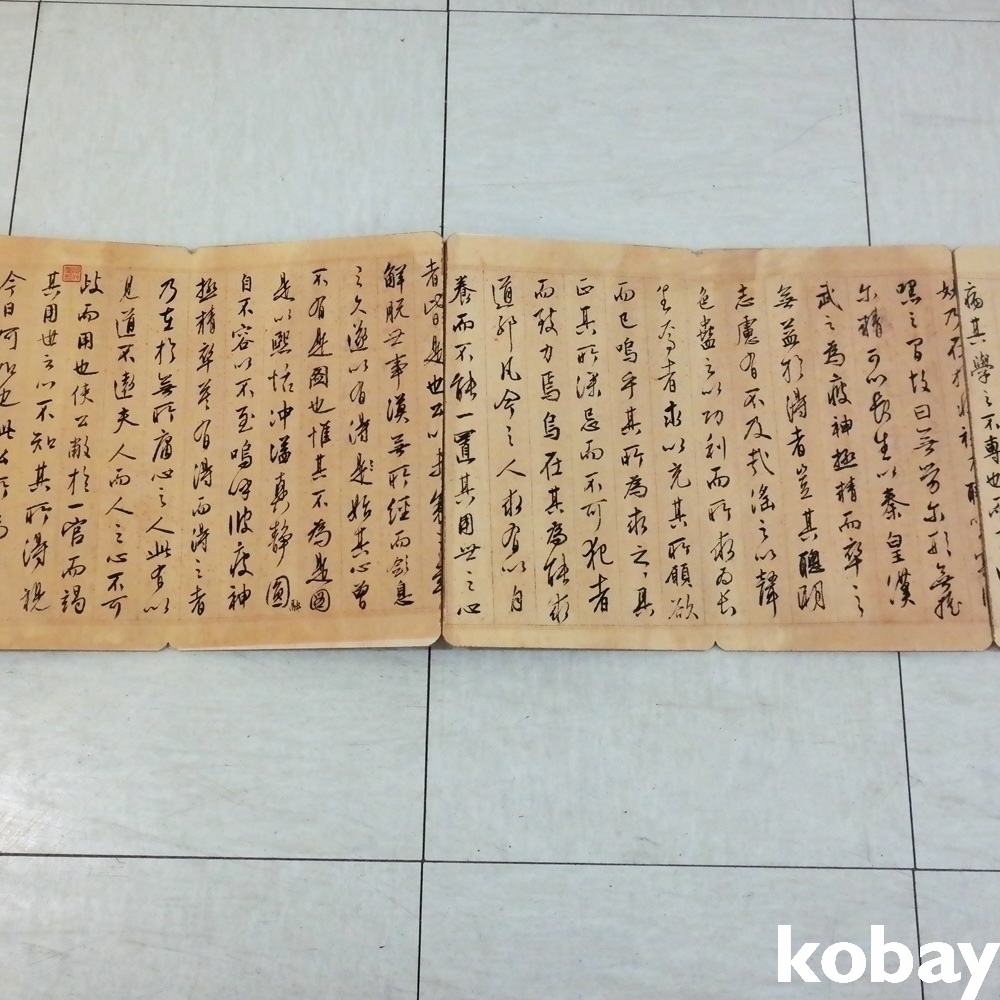 病其學之不專也而
嘿之間故曰無勞尔形無搖
尔精可以長生以秦皇漢
武之為疲神極精而卒之
無益於得者豈其聰明
志慮有不及哉滛之以聲
色蠱之以功利而所求而長
生者求以充其所願欲
而已嗚乎其所為求之其
正其所深忌而不可犯者
而致力焉烏在其為猶求
道耶凡今之人求有以自
養而不能一置其用世之心
者皆是也公以
解脫世事漠無所經而歛息
之久遂以有得是殆其心曾
不有是圖也惟其不為是圖
是以熙恬冲澹真靜圓融
自不容以不至嗚呼彼疲神
極精卒莫有得而得之者
乃在於無所庸心之人此有以
見道不遠夫人而人之心不可
歧而用也使公敝於一官而竭
其用世之心不知其所得視
今日何如也此
kobay